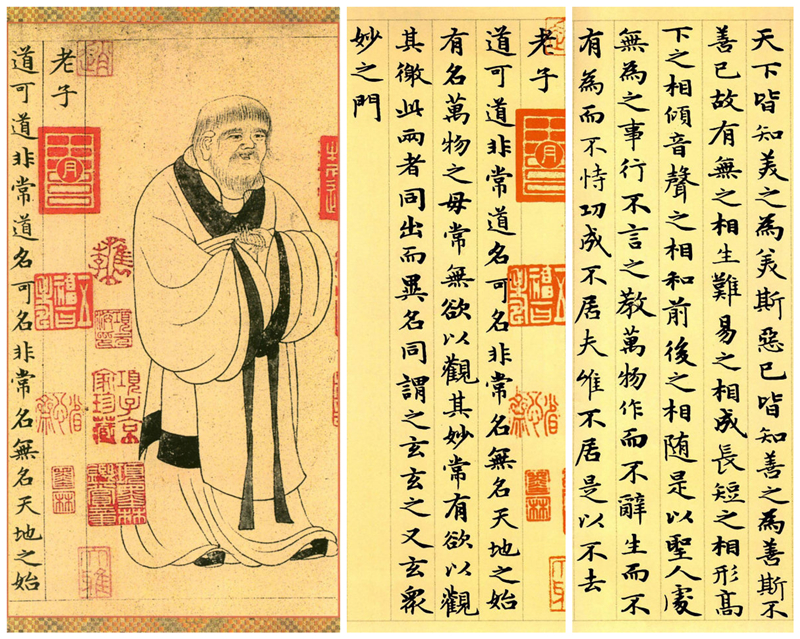 老子
道可道非常道名可名非常名無名天地之始
項子京
家珍藏
老子
道可道非常道名可名非常名無名天地之始
有名萬物之母常無欲以觀其妙常有欲以觀
其徼此兩者同出而異名同謂之玄玄之又玄眾
妙之門
天下皆知美之為美斯惡已皆知善之為善斯不
善已故有無之相生難易之相成長短之相形高
下之相傾音聲之相和前後之相随是以聖人處
無為之事行不言之教萬物作而不辭生而不
有為而不恃功成不居夫惟不居是以不去